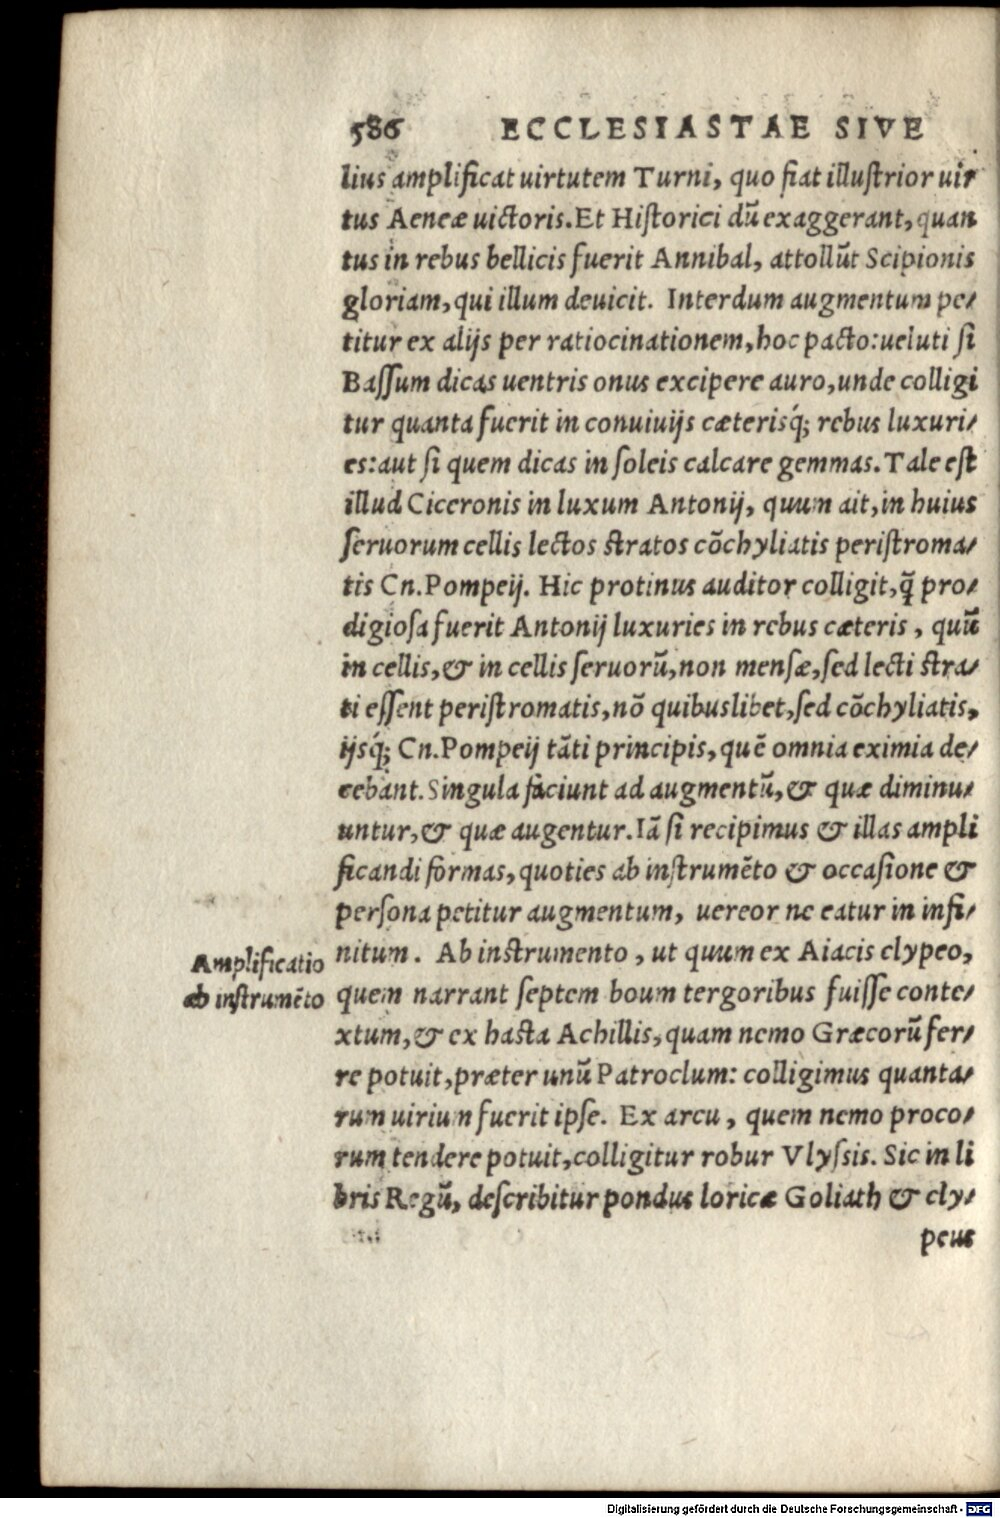 586 ECCLESIASTAE SIVE
lius amplificat uirtutem Turni, quo fiat illuſtrior uir
tus Aeneæ uictoris. Et Hiſtorici dū exaggerant, quan
tus in rebus bellicis fuerit Annibal, attollūt Scipionis
gloriam, qui illum deuicit. Interdum augmentum pe/
titur ex alijs per ratiocinationem, hoc pacto: ueluti ſi
Baſſum dicas uentris onus excipere auro, unde colligi
tur quanta fuerit in conuiuijs cæterisq́; rebus luxuri/
es: aut ſi quem dicas in ſoleis calcare gemmas. Tale eſt
illud Ciceronis in luxum Antonij, quum ait, in huius
ſeruorum cellis lectos ſtratos cōchyliatis periſtroma/
tis Cn. Pompeij. Hic protinus auditor colligit, q̃ pro/
digioſa fuerit Antonij luxuries in rebus cæteris, quū
in cellis, & in cellis ſeruorū, non menſæ, ſed lecti ſtra/
ti eſſent periſtromatis, nō quibuslibet, ſed cōchyliatis,
ijsq́; Cn. Pompeij tāti principis, quē omnia eximia de/
cebant. Singula faciunt ad augmentū, & quæ diminu/
untur, & quæ augentur. Iā ſi recipimus & illas ampli
ficandi formas, quoties ab inſtrumēto & occaſione &
perſona petitur augmentum, uereor ne eatur in infi/
nitum. Ab inſtrumento, ut quum ex Aiacis clypeo,
quem narrant ſeptem boum tergoribus fuiſſe conte/
xtum, & ex haſta Achillis, quam nemo Græcorū fer/
re potuit, præter unū Patroclum: colligimus quanta/
rum uirium fuerit ipſe. Ex arcu, quem nemo proco/
rum tendere potuit, colligitur robur Vlyſsis. Sic in li
bris Regū, deſcribitur pondus loricæ Goliath & cly/
peus
Amplificatio
ab inſtrumēto
Digitalisierung gefördert durch die Deutsche Forschungsgemeinschaft - DFG